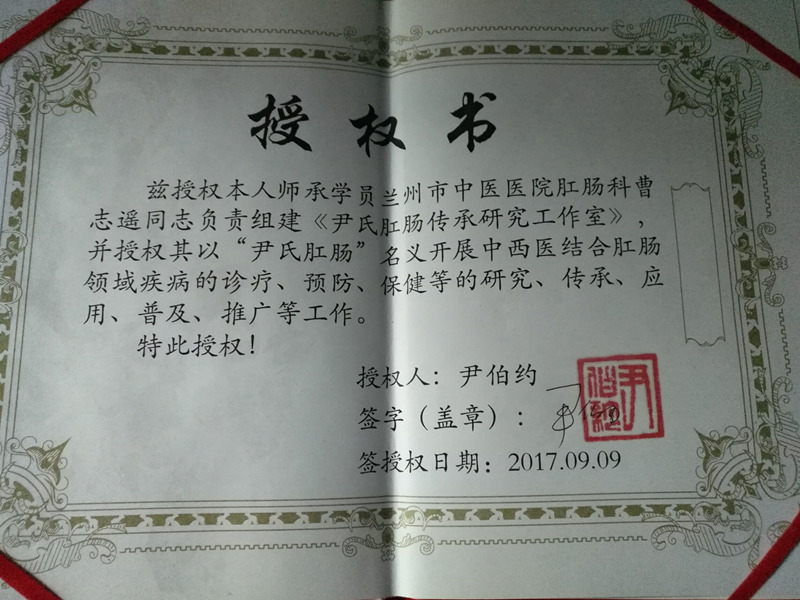 授权书
兹授权本人师承学员兰州市中医医院肛肠科曹
志遥同志负责组建《尹氏肛肠传承研究工作室》，
并授权其以“尹氏肛肠”名义开展中西医结合肛肠
领域疾病的诊疗、预防、保健等的研究、传承、应
用、普及、推广等工作。
特此授权！
授权人：尹伯约
签字（盖章）：
签授权日期：2017.09.09